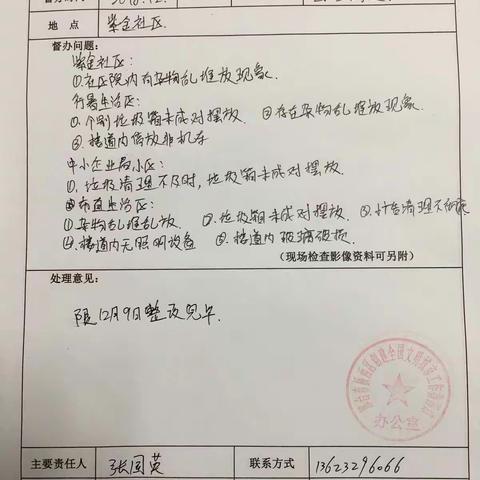 地 点 紫金社区.
督办问题:
紫金社区:
①社区院内有杂物乱堆放现象
行署生活区:
①个别垃圾箱未成对摆放 ②存在杂物乱堆放现象
③楼道内停放非机车
中小企业局小区:
①垃圾清理不及时,垃圾箱未成对摆放.
市直生活区:
①杂物乱堆乱放. ②垃圾箱未成对摆放. ③小广告清理不彻底
④楼道内无照明设备 ⑤楼道内玻璃破损.
(现场检查影像资料可另附)
处理意见:
限12月9日整改完毕.
办公室
主要责任人 张国英 联系方式 13623296066